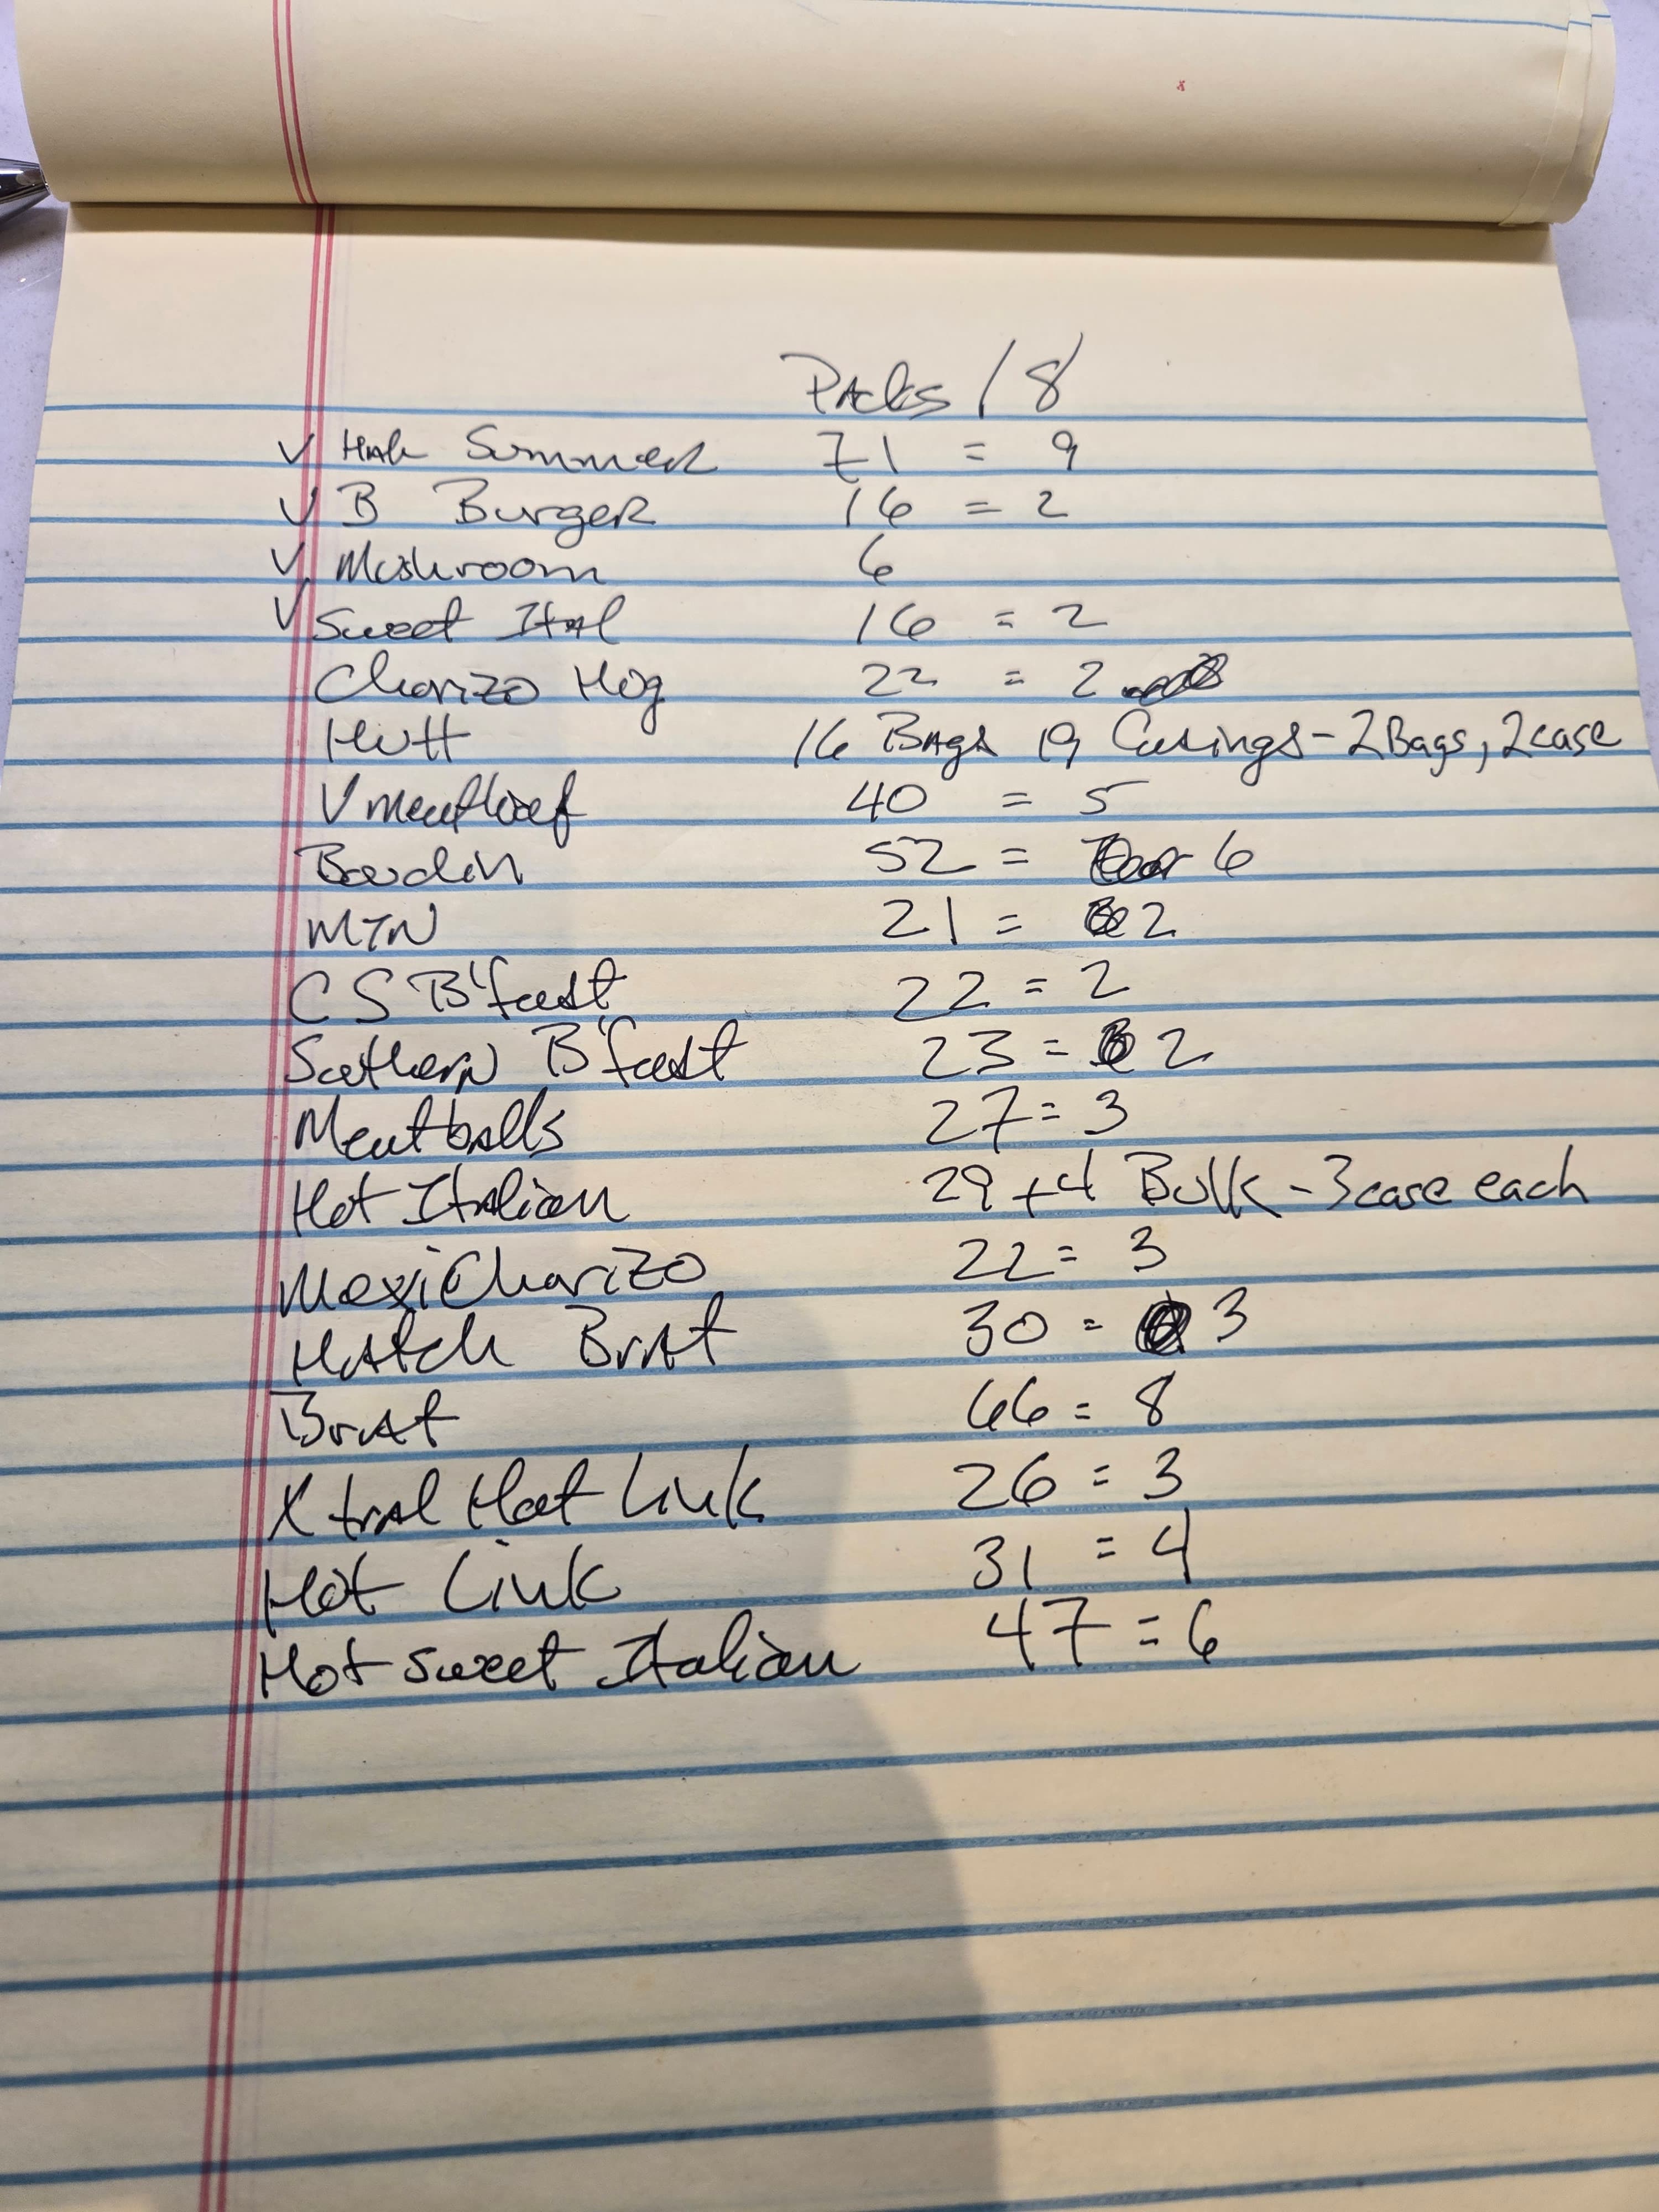 Packs / 8
✓ Summer 71 = 9
✓ B Burger 16 = 2
✓ Mushroom 6
✓ Sweet Ital 16 = 2
Chorizo Hog 22 = 2
16 Bags 19 Casings - 2 Bags, 2 case
V meatloaf 40 = 5
Boudin 52 = 6
MTN 21 = 2
CS B'fast 22 = 2
Southern B'fast 23 = 2
Meatballs 27 = 3
Hot Italian 29 + 4 Bulk - 3 case each
Mexi Chorizo 22 = 3
Hatch Brat 30 = 3
Brat 66 = 8
Xtra Hot Link 26 = 3
Hot Link 31 = 4
Hot Sweet Italian 47 = 6